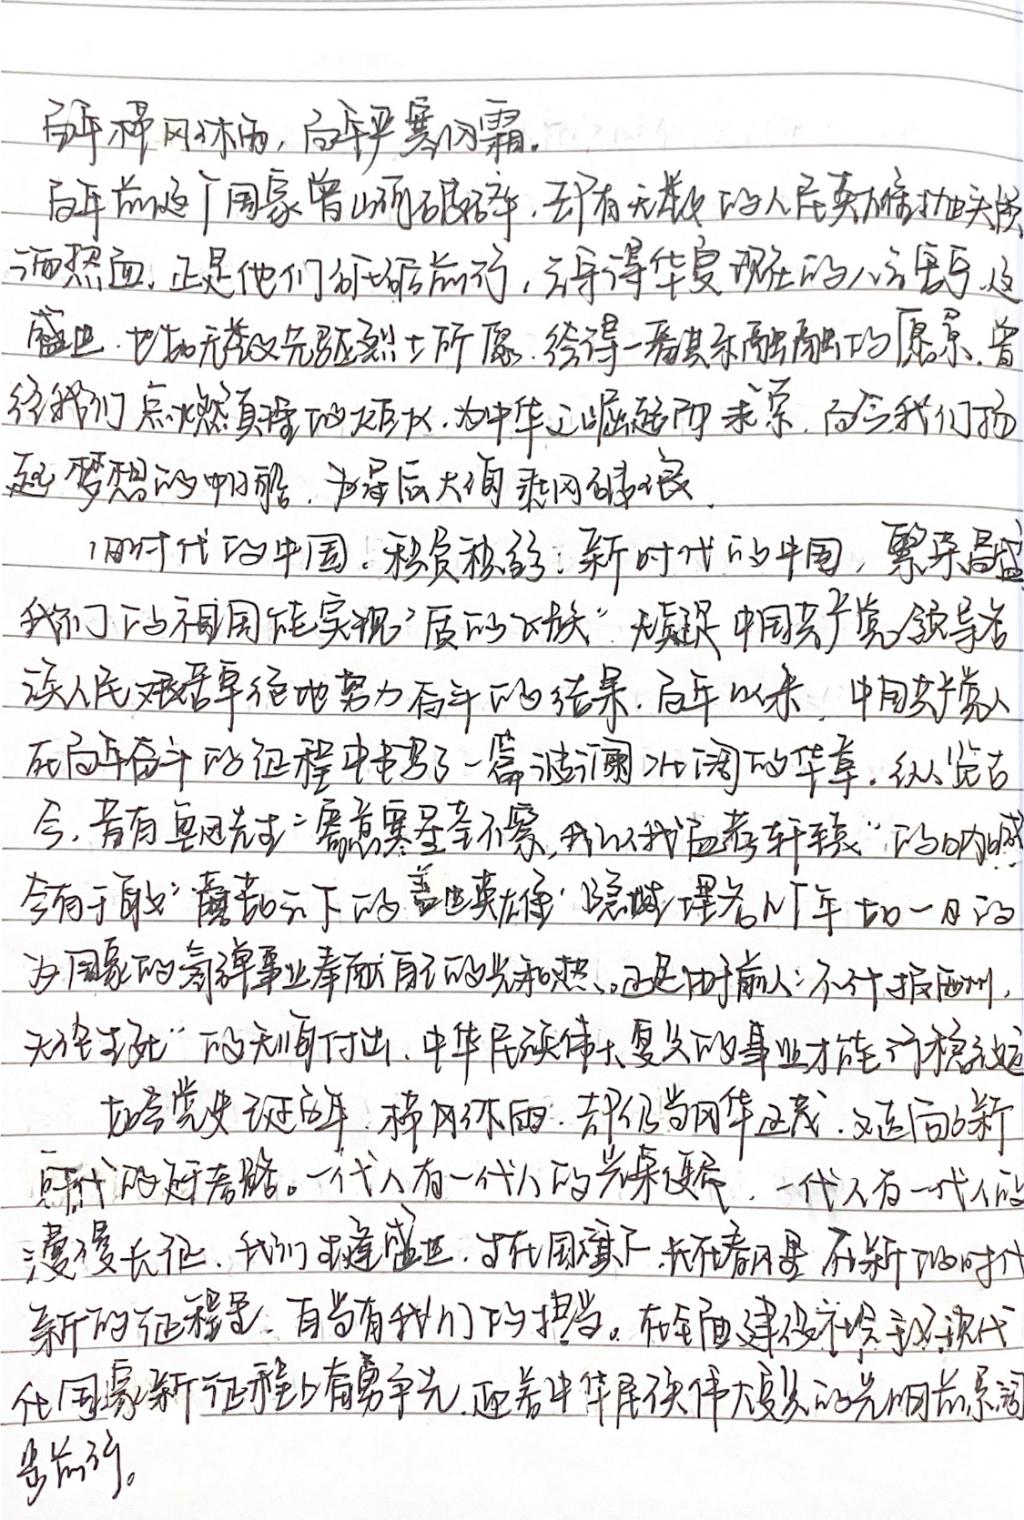 百年栉风沐雨，百年严寒仞霜。
百年前这个国家曾山河破碎，却有无数的人民英雄抛头颅
洒热血，正是他们砥砺前行，方得华夏现在的八方
盛世，也如无数先驱烈士所愿，一番其乐融融的愿景，曾
经我们点燃真理的火，为中华之崛起而求索，而今我们扬
起梦想的帆船，为最后大乘风破浪
旧时代的中国，积贫积弱；新时代的中国，繁荣昌盛
我们的祖国能实现“质的飞跃”无疑是中国共产党领导各
族人民艰苦卓绝地努力奋斗的结果，百年以来，中国共产党人
在百年奋斗的征程中书写了一篇波澜壮阔的华章。纵览古
今，昔有鲁迅先生“寄意寒星荃不察，我以我血荐轩辕”的呐喊
今有于敏“蘑菇云下的盖世英雄”隐姓埋名八年如一日的
为国家的氢弹事业奉献自己的光和热，正是由于前人“不计报酬，
无论生死”的付出，中华民族伟大复兴的事业才能行稳致远
如今党史诞百年，栉风沐雨，却仍当风华正茂，又迈向新
时代的赶考路。一代人有一代人的，一代人有一代人的
漫漫长征，我们生逢盛世，生在国旗下，长在春风里，在新的时代
新的征程里，自当有我们的担当。在全面建设社会主义现代
化国家新征程上奋勇争先，迎着中华民族伟大复兴的光明前景阔
步前行。